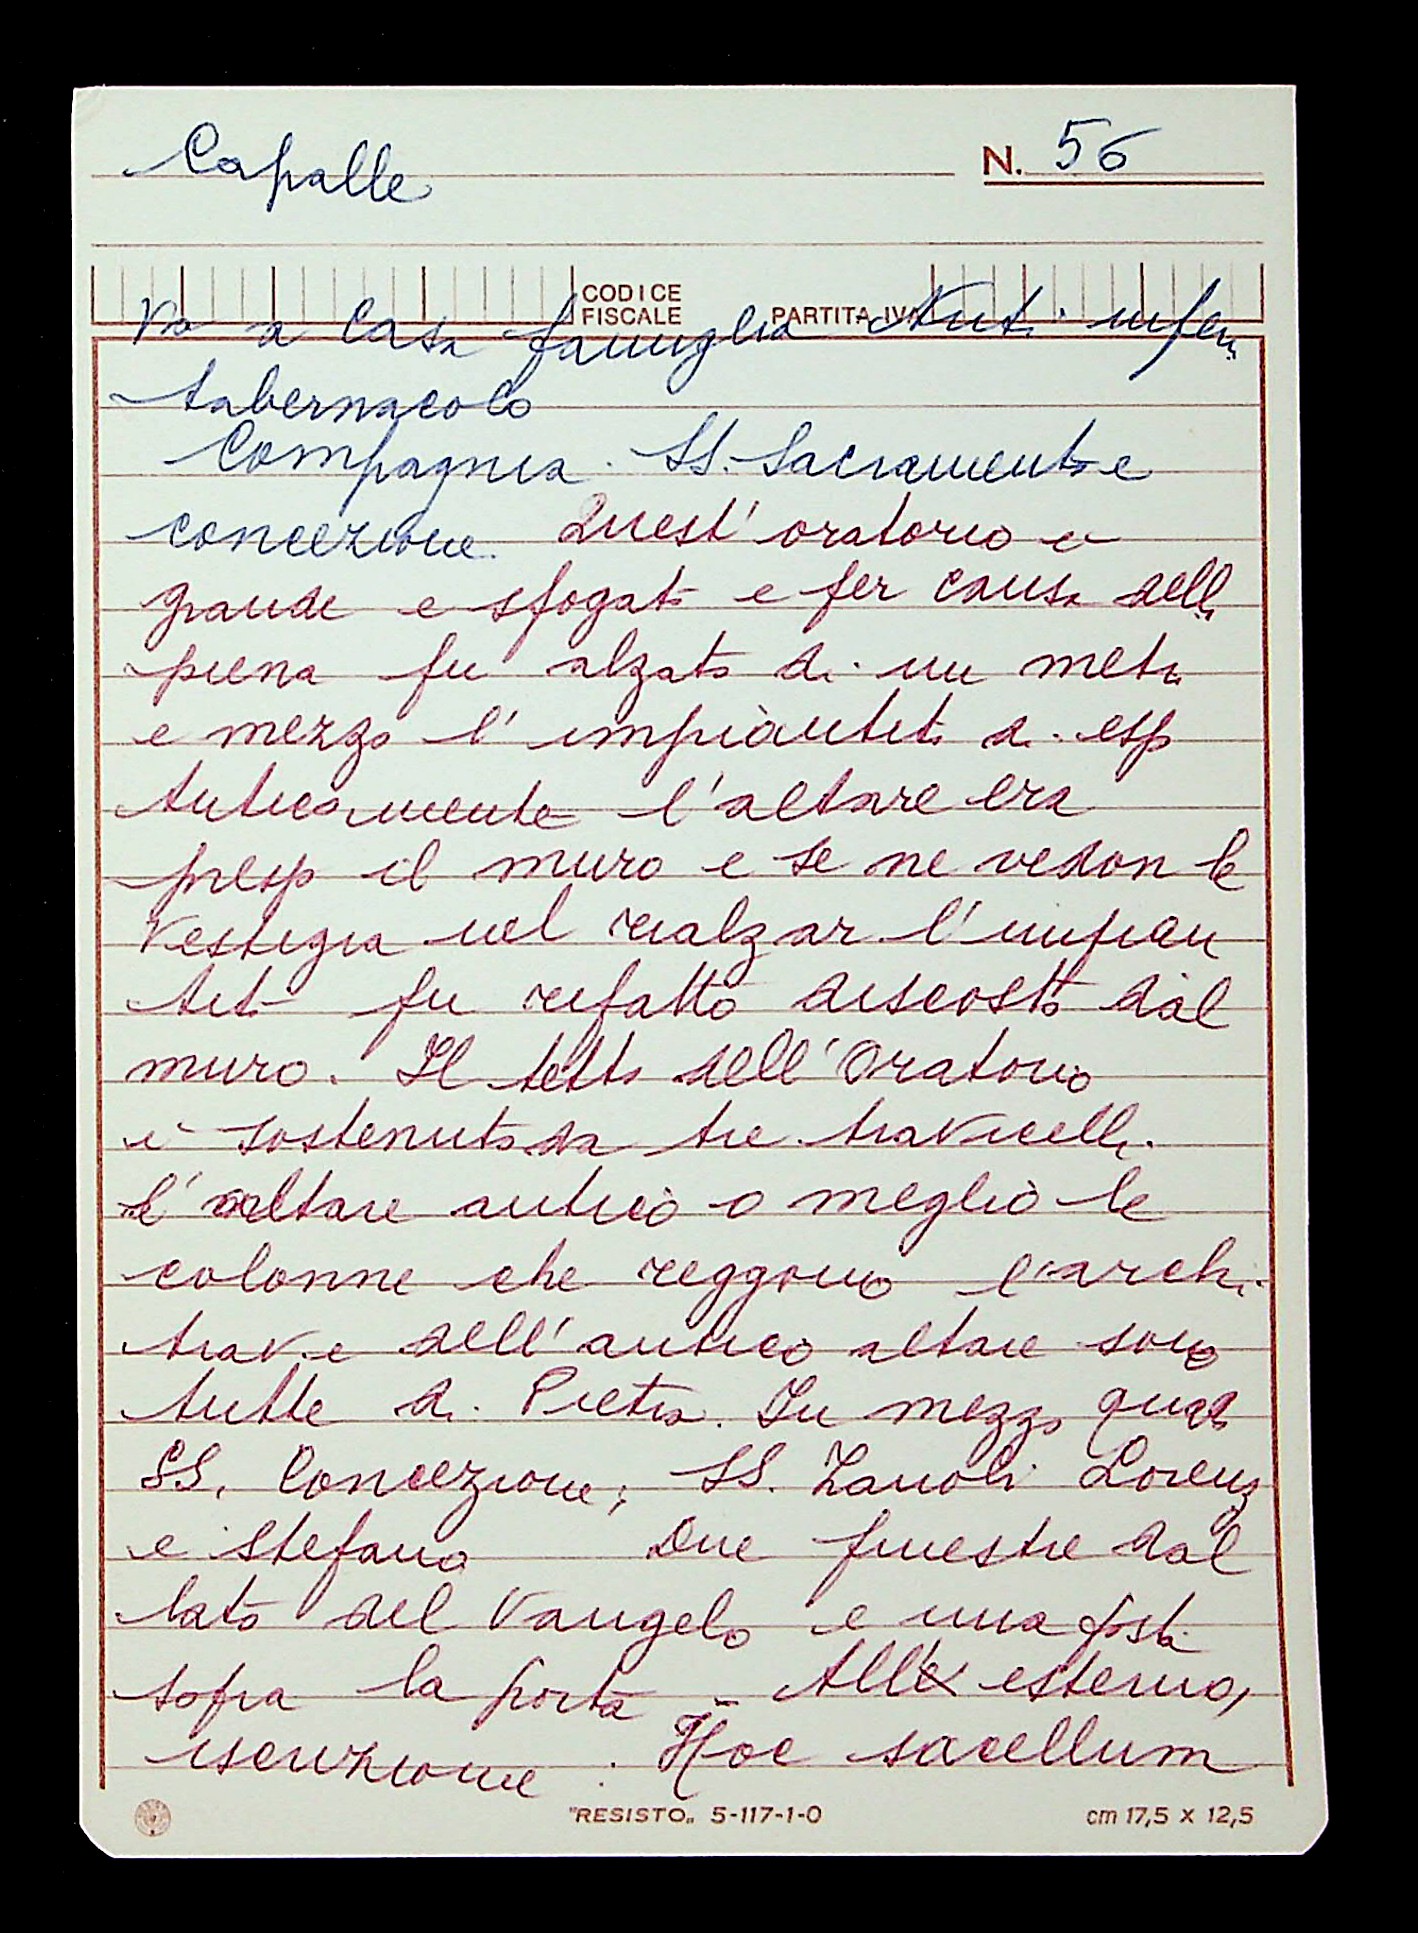 Capalle
N. 56
CODICE
FISCALE PARTITA IVA
Va a casa famiglia Nuti
tabernacolo
Compagnia SS. Sacramento e
concezione. Quest' oratorio è
grande e sfogato e per causa della
piena fu alzato di un metro
e mezzo l' impiantito di esso
Anticamente l'altare era
presso il muro e se ne vedon le
vestigia nel rialzar l'impian
tito fu rifatto discosto dal
muro. Il tetto dell'Oratorio
è sostenuto da tre travicelli.
L'altare antico o meglio le
colonne che reggono l'archi-
trave dell'antico altare sono
tutte di Pietra. In mezzo
SS. Concezione; SS. Zanobi Lorenzo
e Stefano Due finestre dal
lato del Vangelo e una posta
sopra la porta - All' esterno,
iscrizione: Hoc sacellum
"RESISTO" 5-117-1-0 cm 17,5 x 12,5